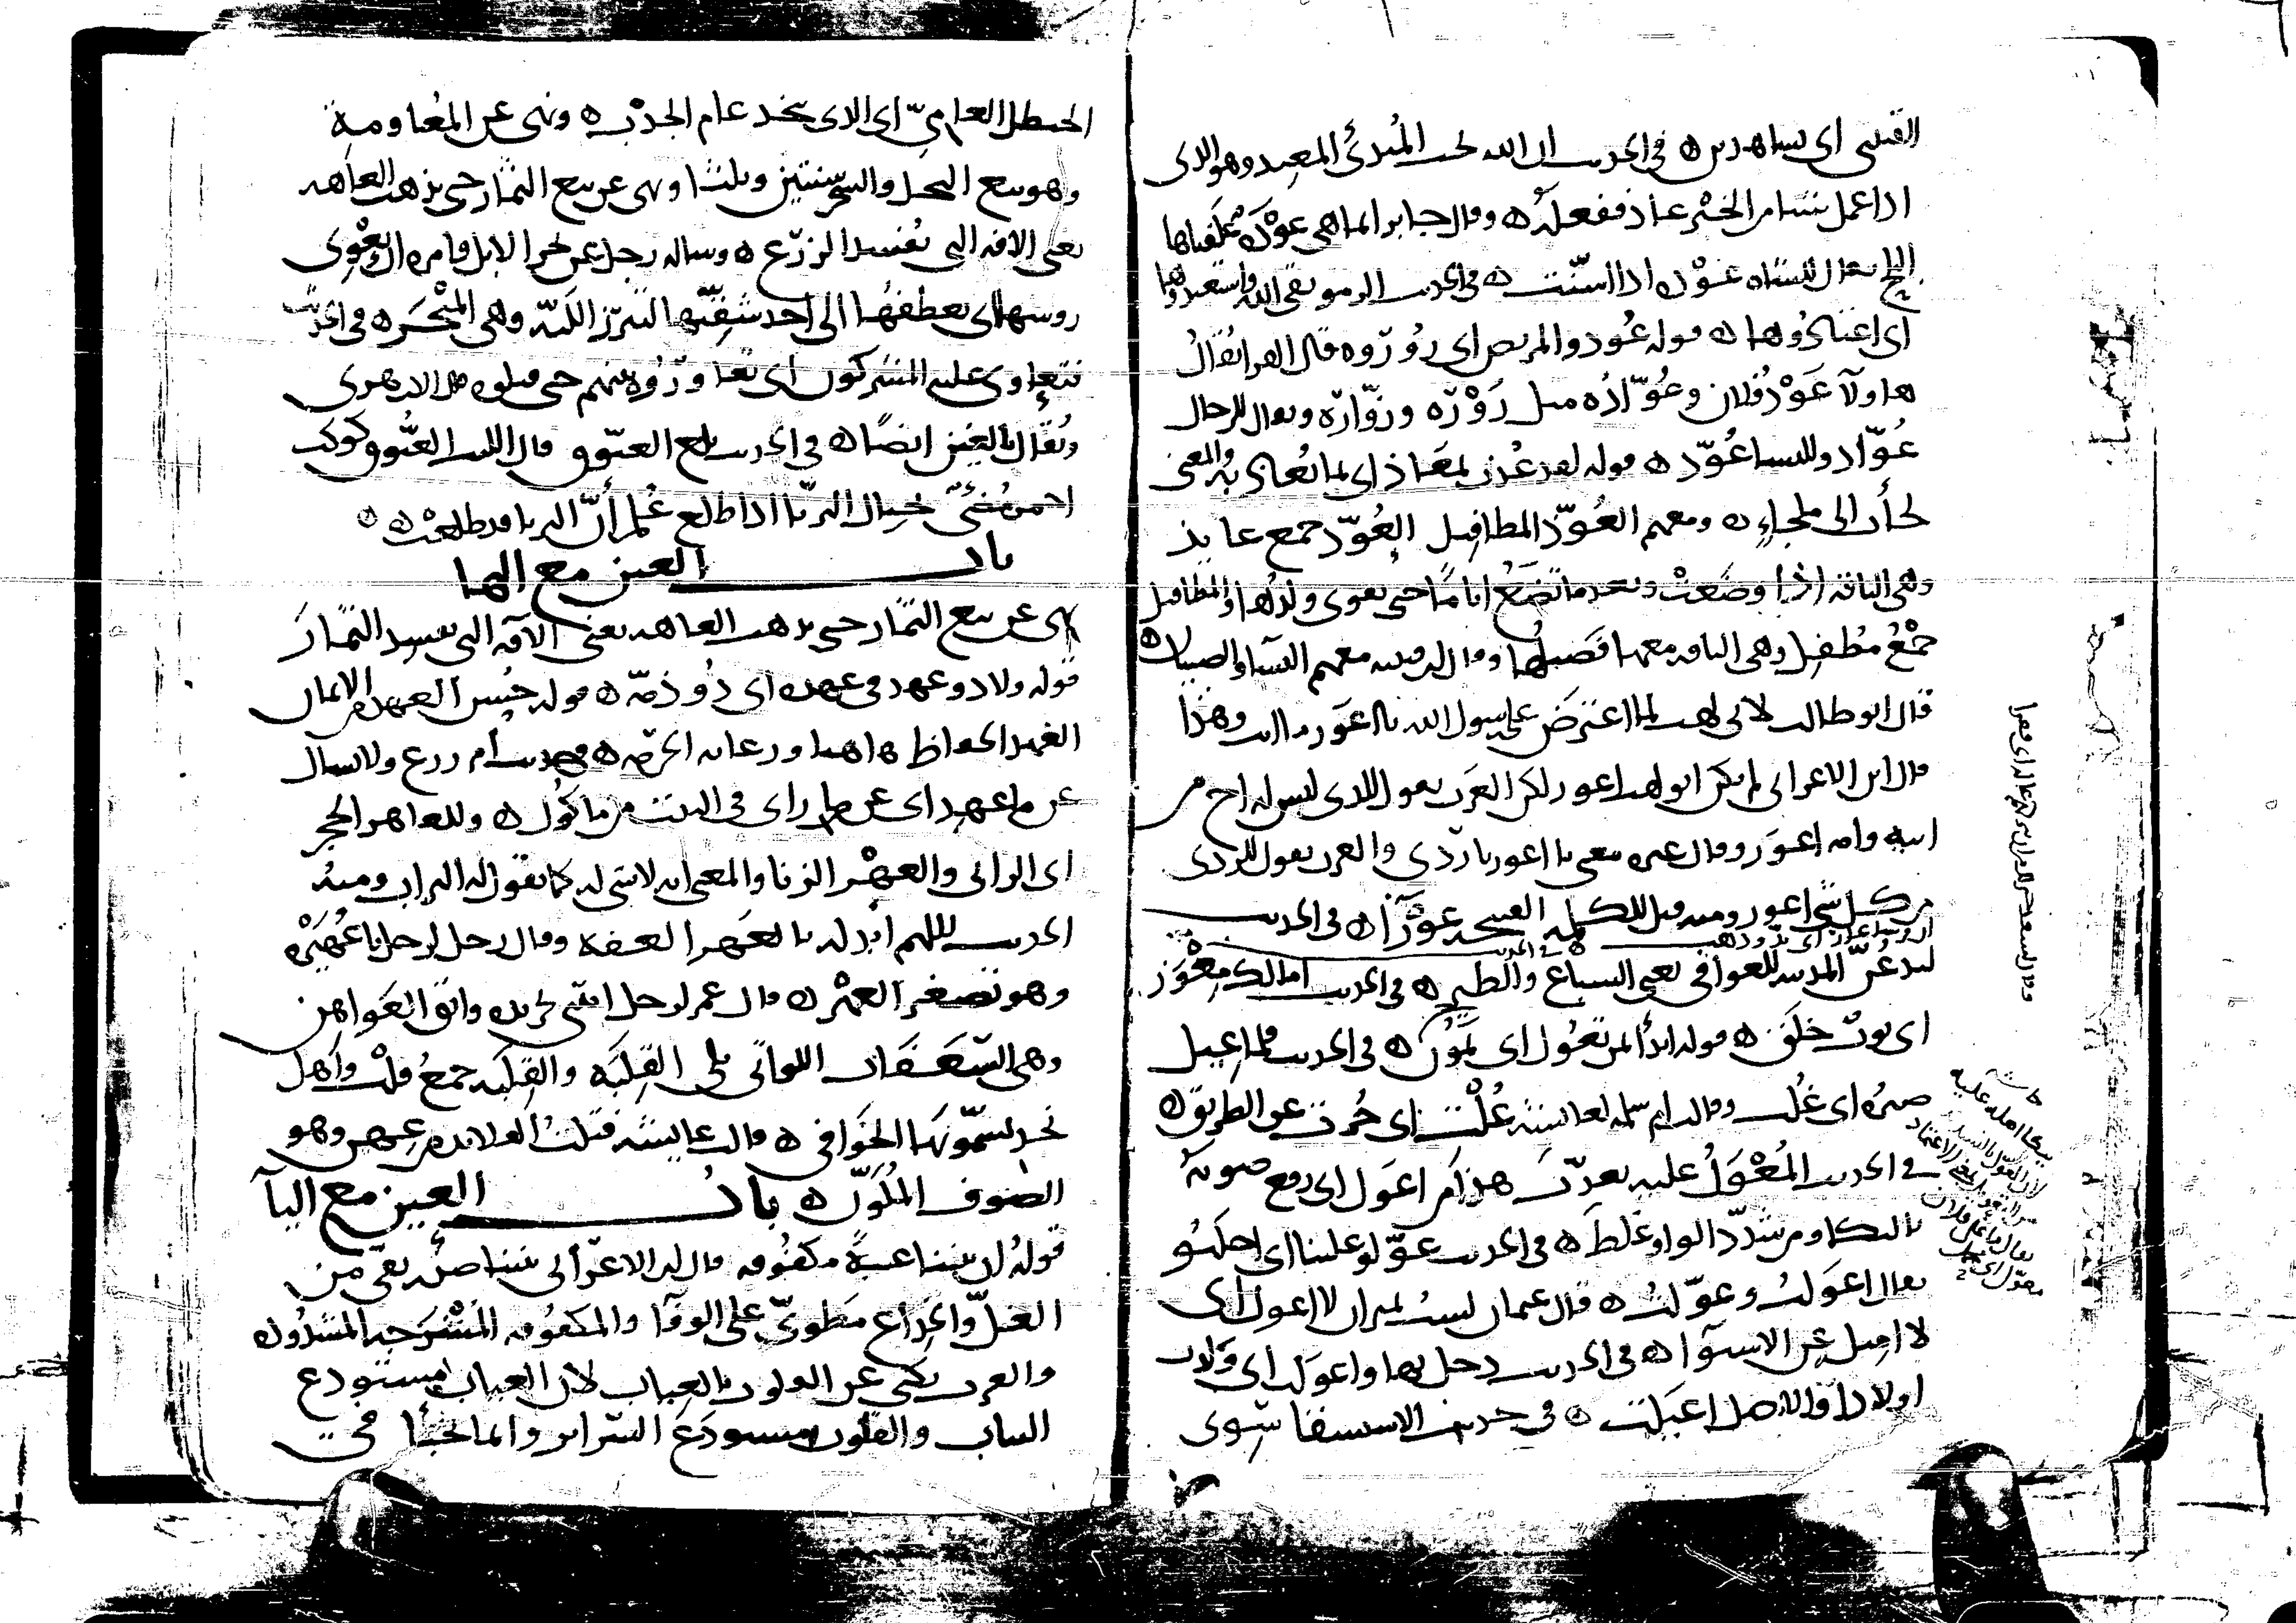 القسي اى لساهدين ه في الحديث ان الله يحب المُبدئ المعيد وهو الذى
اذا عمل شيا من الخير عاد ففعله ه وقال جابر انما هى عَوْدَة عَلَفناها
البلح يقال للشاة عَوْدة اذا اسنّت ه فى الحديث الزموا تقى الله واستعيدوها
اى اعتادُوها ه قوله عُودوا المريض اى زُورُوه قال الفرا يُقالُ
هاولآ عَوْدُ فلان وعُوّادُه مثل زَوْرَه وزوّارَه ويقال للرجال
عُوّاد وللنسا عُوّد ه قوله لقد عُذتِ بمَعَاذ اى بما يُعاذ به والمعنى
لجأت الى ملجاءٍ ه ومعهم العُوّذ المطافيل العُوّذ جمع عايذ
وهى الناقة اذا وضَعتْ وبعدما تضعُ اياما حتى يقوى ولدُها والمطافيل
جمْعُ مُطفِل وهى الناقة معها فصيلُها وقال ابن قتيبة معهم النسا والصبيان ه
قال ابو طالب لابى لهب لما اعترَض على رسول الله يا اعوَر ما انت وهذا
قال ابن الاعرابى لم يكن ابو لهب اعور ولكن العَرَب يقول للذى ليس له اخ من
ابيه وامه اعوَر وقال غيره معنى يا اعور يا ردى والعرب يقول للردى
من كل شى اعور ومنه قيل للكلمة القبيحة عَوْرَآ ه فى الحديث
ليدعُنّ المدينة للعوافى يعنى السباع والطير ه فى الحديث امالك مِعْوَز
اى ثوبٌ خَلَق ه قوله ابدأ بمن تعُول اى تمُون ه فى الحديث فلما عِيل
صبرُه اى غُلب وقالت ام سلمة لعايشة عُلْتِ اى جُرتِ عن الطريق ه
فى الحديث المُعْوَلُ عليه يعذّب هذا من اعوَل اى رفع صوته
بالبكا ومن شدّد الواو غلط ه فى الحديث عَوّلوا علينا اى اجلبُو
يقال اعوَلتُ وعوّلتُ ه قال عثمان لستُ بميزان لا اعول اى
لا اميل عن الاستوآ ه فى الحديث دخل بها واعوَلت اى ولدت
اولادا والاصل اعيَلت ه فى حديث الاستسقا سِوى
الحنظل العامىّ اى الذى يتخذ عام الجدْب ه ونهى عن المُعاومة
وهو بيع النخل والشجر سنتين وثلثا ونهى عن بيع الثمار حتى يذهب العاهة
يعنى الافة التى تُفسد الزرع ه وساله رجل عن نحر الابل فامره ان يَعْوِى
روسها اى يعطفها الى احد شِقّيها لتبرز اللَبّة وهى المَنْحَر ه فى الحديث
فتعاوى عليه المشركون اى تعاوَنُوه بينهم حتى قتلوه قال الازهرى
ويُقال بالغين ايضًا ه فى الحديث طلع العيّوق قال الليث العَيُّوق كوكب
احمر مُضىٌ بحيال الثريّا اذا طلع عُلِم أنّ الثريا قد طلعتْ ه
باب العين مع الها
نهى عن بيع الثمار حتى يذهب العاهة يعنى الآفه التى يفسد الثمارَ
قوله ولا ذو عهد فى عهده اى ذُو ذمّة ه قوله حُسن العهد من الايمان
العهد الحفاظ هاهنا ورعاية الحرمة ه فى حديث أم زرع ولا يسال
عن ما عهِد اى عن ما راى فى البيت من ماكُول ه وللعاهر الحجر
اى الزانى والعِهْر الزنا والمعنى انه لا شى له كما تقول له التراب ومنه
الحديث اللهم ابْدله بالعَهر العفة وقال رجل لرجل يا عُهَيْرة
وهو تصغير العهْر ه قال عمر لرجل ايتنى بجريدة واتق العَواهن
وهى السّعَفات اللواتى يلى القِلَبَة والقِلَبَة جمعُ قلب واهل
نجد يسمّونها الخوافى ه قالت عايشة فتلتُ القلايد من عِهن وهو
الصوف المُلَوّن ه باب العين مع اليآ
قولهُ ان بيننا عيبةً مكفُوفه قال ابن الاعرابى بيننا صدْر نقى من
الغلّ والخداع مَطوىّ على الوفآ والمكفُوفة المُشرَجة المشدُودة
والعرب تكنى عن القلوب بالعياب لان العياب مستودع
الثياب والقلوب مستودَع السّراير وانما يُخبأ فى